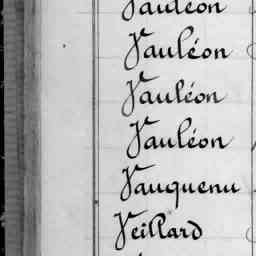 Vauléon
Vauléon
Vauléon
Vauléon
Vauquenu
Veillard